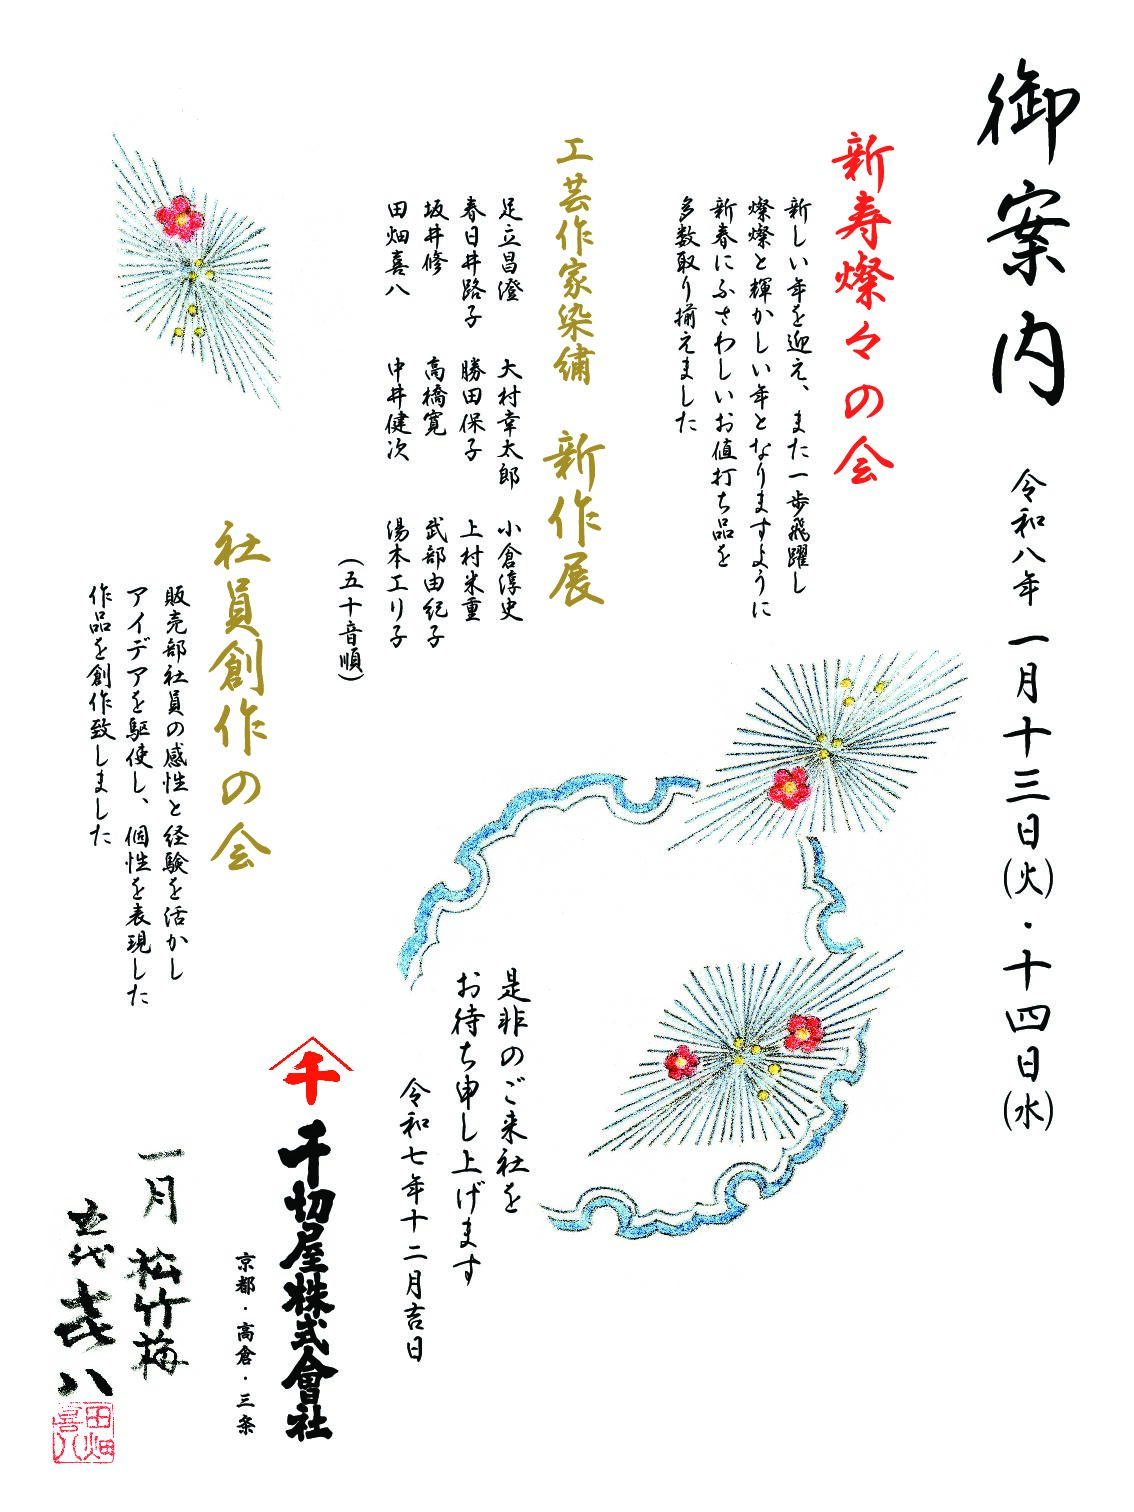 御案内
令和八年 一月十三日(火)・十四日(水)
新寿燦々の会
新しい年を迎え、また一歩飛躍し
燦燦と輝かしい年となりますように
新春にふさわしいお値打ち品を
多数取り揃えました
工芸作家染繍 新作展
足立昌澄 大村幸太郎 小倉淳史
春日井路子 勝田保子 上村米重
坂井修 高橋寛 武部由紀子
田畑喜八 中井健次 湯本エリ子
(五十音順)
社員創作の会
販売部社員の感性と経験を活かし
アイデアを駆使し、個性を表現した
作品を創作致しました
是非のご来社を
お待ち申し上げます
令和七年十二月吉日
千
千切屋株式會社
京都・高倉・三条
一月 松竹梅
五代 喜八
田畑喜八